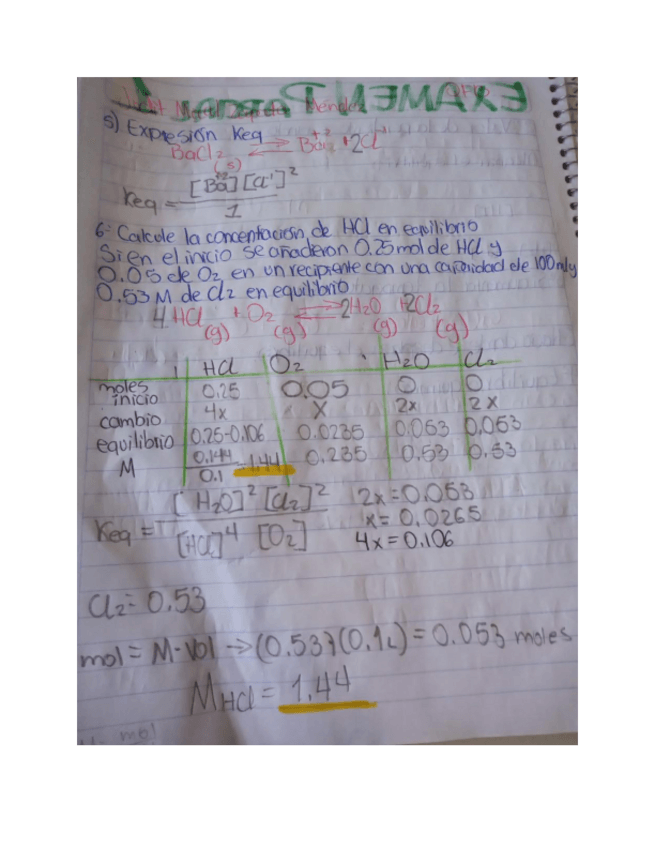 Mendoz
5) Expresión Keq
BaCl₂ (s) ⇌ Ba⁺² + 2Cl⁻¹
Keq = [Ba⁺²][Cl⁻¹]² / 1
6: Calcule la concentración de HCl en equilibrio
Si en el inicio se añadieron 0.25 mol de HCl y
0.05 de O₂ en un recipiente con una capacidad de 100ml y
0.53 M de Cl₂ en equilibrio
4HCl (g) + O₂ (g) ⇌ 2H₂O (g) + 2Cl₂ (g)
HCl O₂ H₂O Cl₂
moles inicio 0.25 0.05 0 0
cambio 4x x 2x 2x
equilibrio 0.25-0.106 0.0235 0.053 0.053
M 0.144 / 0.1 = 1.44 0.235 0.53 0.53
Keq = [H₂O]² [Cl₂]² / [HCl]⁴ [O₂]
2x = 0.053
x = 0.0265
4x = 0.106
Cl₂ = 0.53
mol = M·Vol → (0.53)(0.1L) = 0.053 moles
M HCl = 1.44
mol